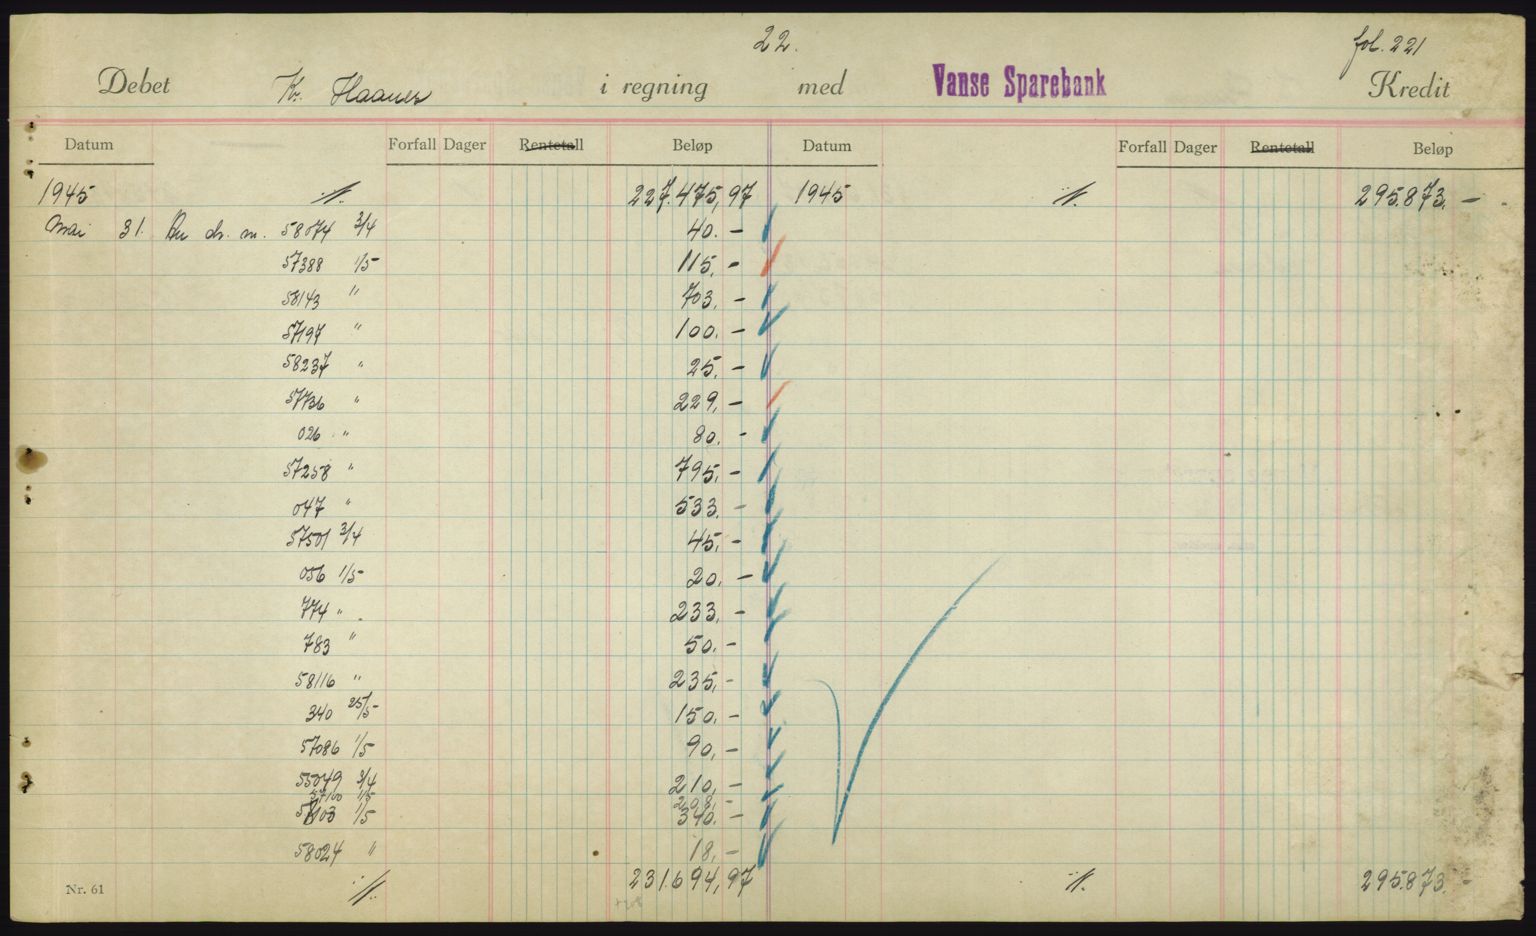 22.
fol. 221
Debet Kr. Haanes i regning med Vanse Sparebank Kredit
Datum Forfall Dager Rentetall Beløp Datum Forfall Dager Rentetall Beløp
1945 ·/. 227.475,97 1945 ·/. 295.873. –
Mai 31. An ch. m. 58074 3/4 40. –
57388 1/5 115, –
58143 " 703, –
57197 " 100. –
58237 " 25. –
57736 " 229, –
026 " 80. –
57258 " 795, –
047 " 533. –
57501 3/4 45, –
056 1/5 20. –
774 " 233. –
783 " 50. –
58116 " 235, –
340 25/5 150. –
57086 1/5 90, –
55049 3/4 210, –
57100 1/5 208, –
57103 1/5 340. –
58024 " 18, –
·/. 231.694,97 ·/. 295.873. –
Nr. 61
+208